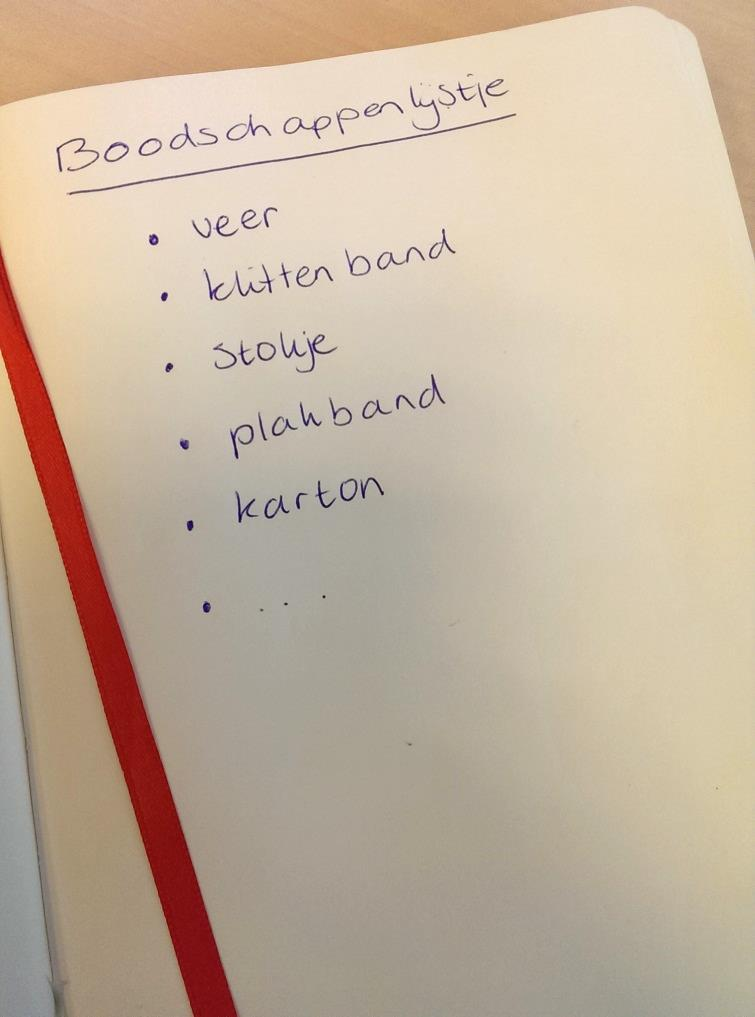 Boodschappenlijstje
• veer
• klittenband
• stokje
• plakband
• karton
• ...